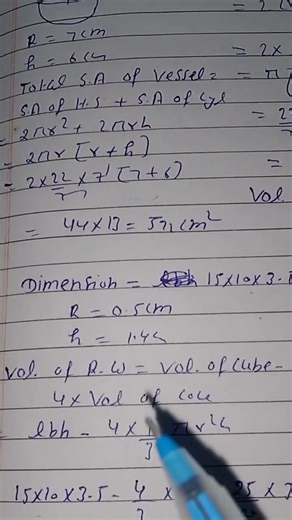 R = 7cm
h = 6cm
= 2x
Total S.A of Vessel = = π
S.A of H.S + S.A of Cyl
= 2πr² + 2πrh
= 2πr [r+h]
= 2x22 x 7 [7+6]
Vol
= 44x13 = 572 cm²
Dimension = 15x10x3.
R = 0.5cm
h = 1.4
Vol. of R.W = Vol. of Cube -
4x Vol of Cone
= lbh - 4x πr²h
3
15x10x3.5 - 4 x 25 x 7
3